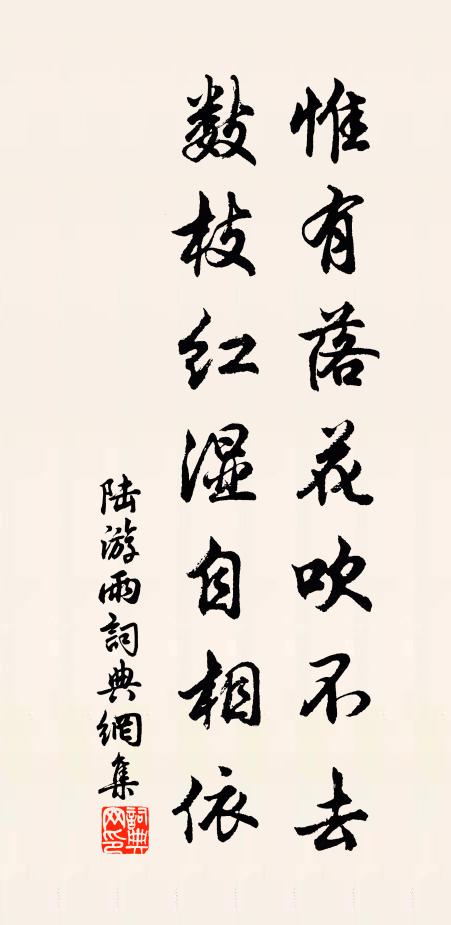 惟有落花吹不去
数枝红湿自相依
陆游雨詞典網集
詞典网印